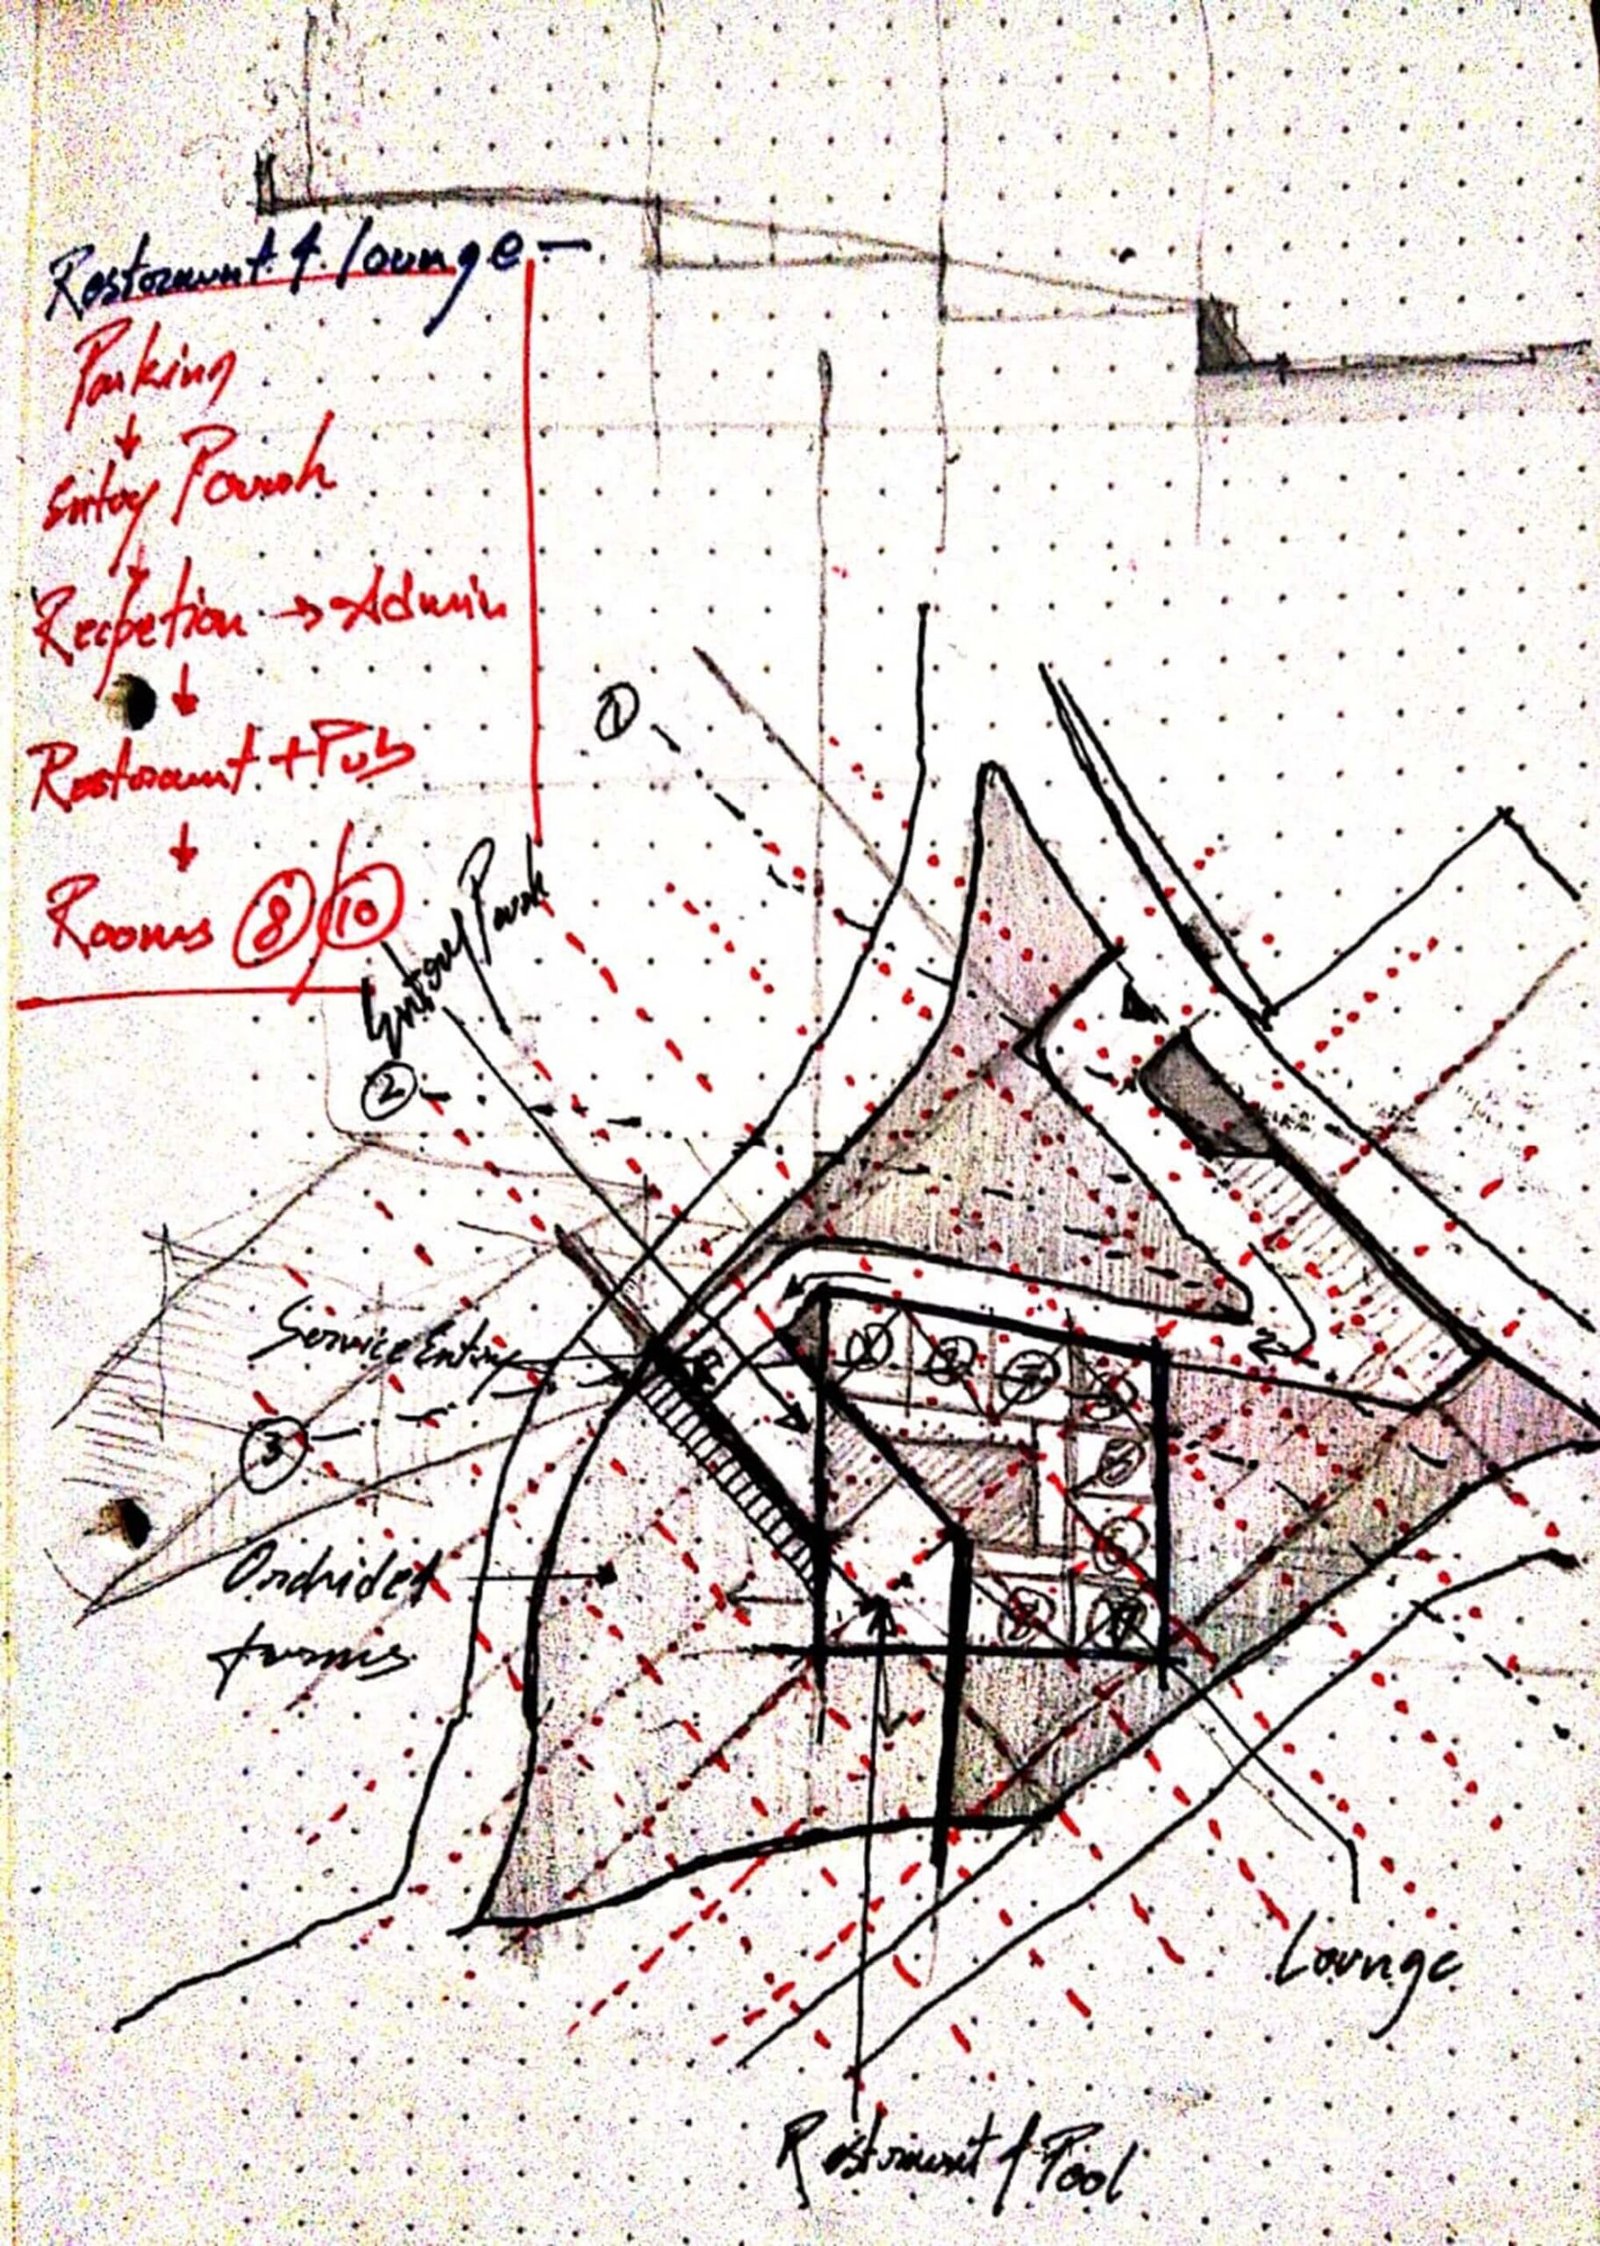 Restoraunt & lounge -
Parking
↓
Entry Porch
↓
Reception → Admin
↓
Restoraunt + Pub
↓
Rooms 8/10
1
Entry Porch
2
Service Entry
3
1 2 7 3
5
6
8
Orchided
farms
Lounge
Restoraunt & Pool